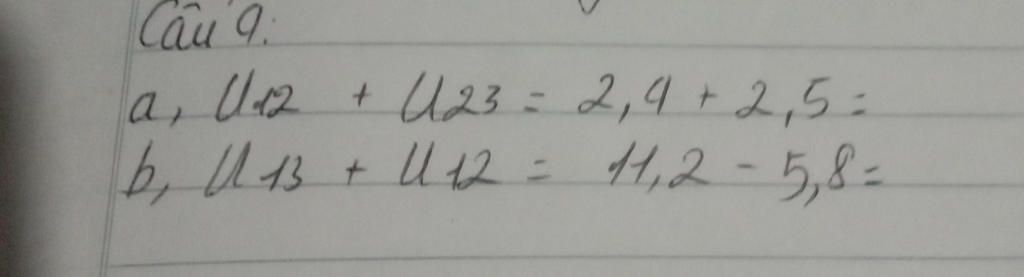 Câu 9:
a, U12 + U23 = 2,4 + 2,5 =
b, U13 + U12 = 11,2 - 5,8 =